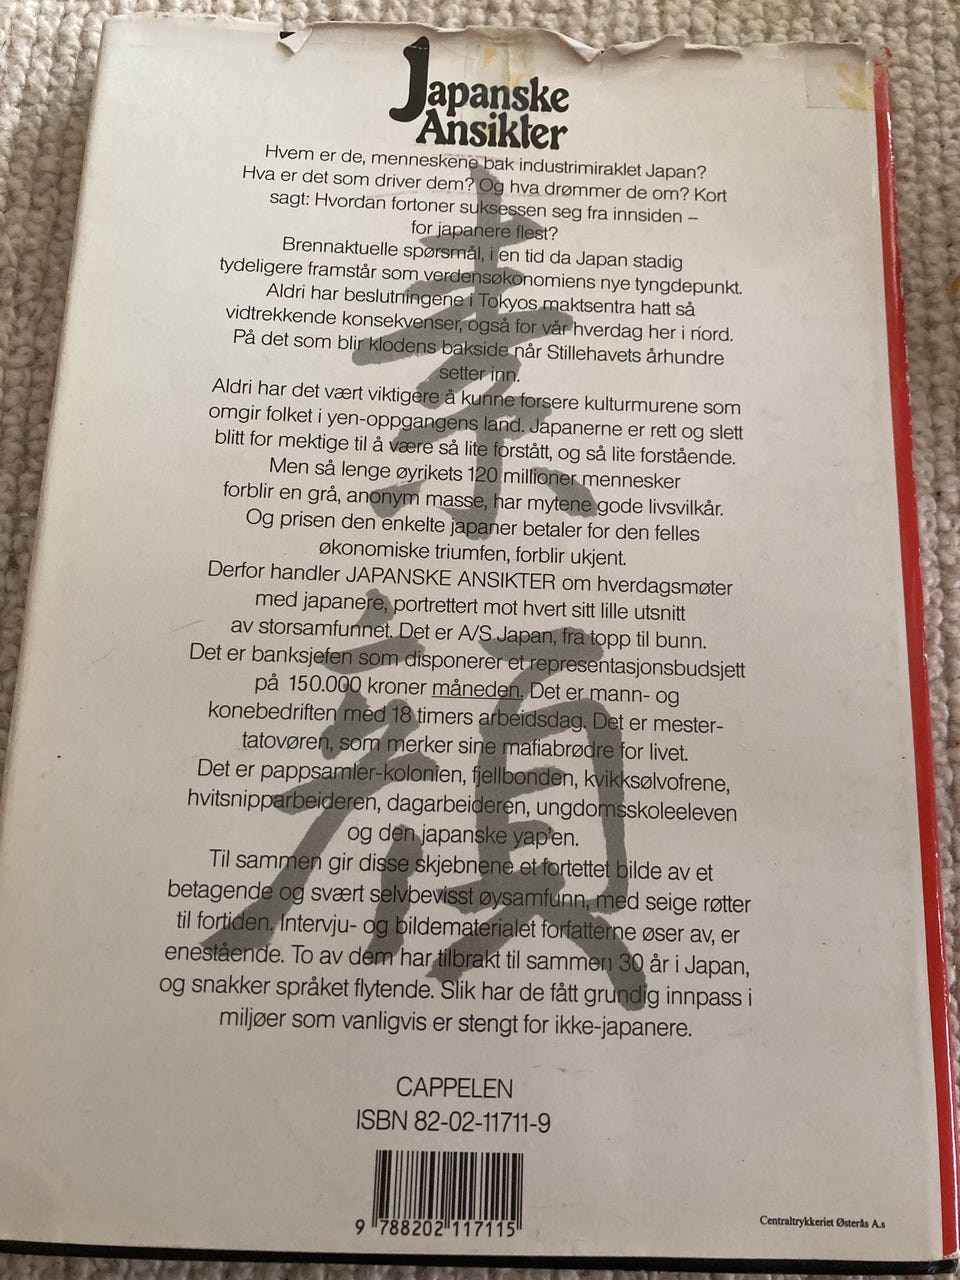 Japanske
Ansikter
Hvem er de, menneskene bak industrimiraklet Japan?
Hva er det som driver dem? Og hva drømmer de om? Kort
sagt: Hvordan fortoner suksessen seg fra innsiden –
for japanere flest?
Brennaktuelle spørsmål, i en tid da Japan stadig
tydeligere framstår som verdensøkonomiens nye tyngdepunkt.
Aldri har beslutningene i Tokyos maktsentra hatt så
vidtrekkende konsekvenser, også for vår hverdag her i nord.
På det som blir klodens bakside når Stillehavets århundre
setter inn.
Aldri har det vært viktigere å kunne forsere kulturmurene som
omgir folket i yen-oppgangens land. Japanerne er rett og slett
blitt for mektige til å være så lite forstått, og så lite forstående.
Men så lenge øyrikets 120 millioner mennesker
forblir en grå, anonym masse, har mytene gode livsvilkår.
Og prisen den enkelte japaner betaler for den felles
økonomiske triumfen, forblir ukjent.
Derfor handler JAPANSKE ANSIKTER om hverdagsmøter
med japanere, portrettert mot hvert sitt lille utsnitt
av storsamfunnet. Det er A/S Japan, fra topp til bunn.
Det er banksjefen som disponerer et representasjonsbudsjett
på 150.000 kroner måneden. Det er mann- og
konebedriften med 18 timers arbeidsdag. Det er mester-
tatovøren, som merker sine mafiabrødre for livet.
Det er pappsamler-kolonien, fjellbonden, kvikksølvofrene,
hvitsnipparbeideren, dagarbeideren, ungdomsskoleeleven
og den japanske yap'en.
Til sammen gir disse skjebnene et fortettet bilde av et
betagende og svært selvbevisst øysamfunn, med seige røtter
til fortiden. Intervju- og bildematerialet forfatterne øser av, er
enestående. To av dem har tilbrakt til sammen 30 år i Japan,
og snakker språket flytende. Slik har de fått grundig innpass i
miljøer som vanligvis er stengt for ikke-japanere.
素
顔
CAPPELEN
ISBN 82-02-11711-9
9 788202 117115
Centraltrykkeriet Østerås A.s